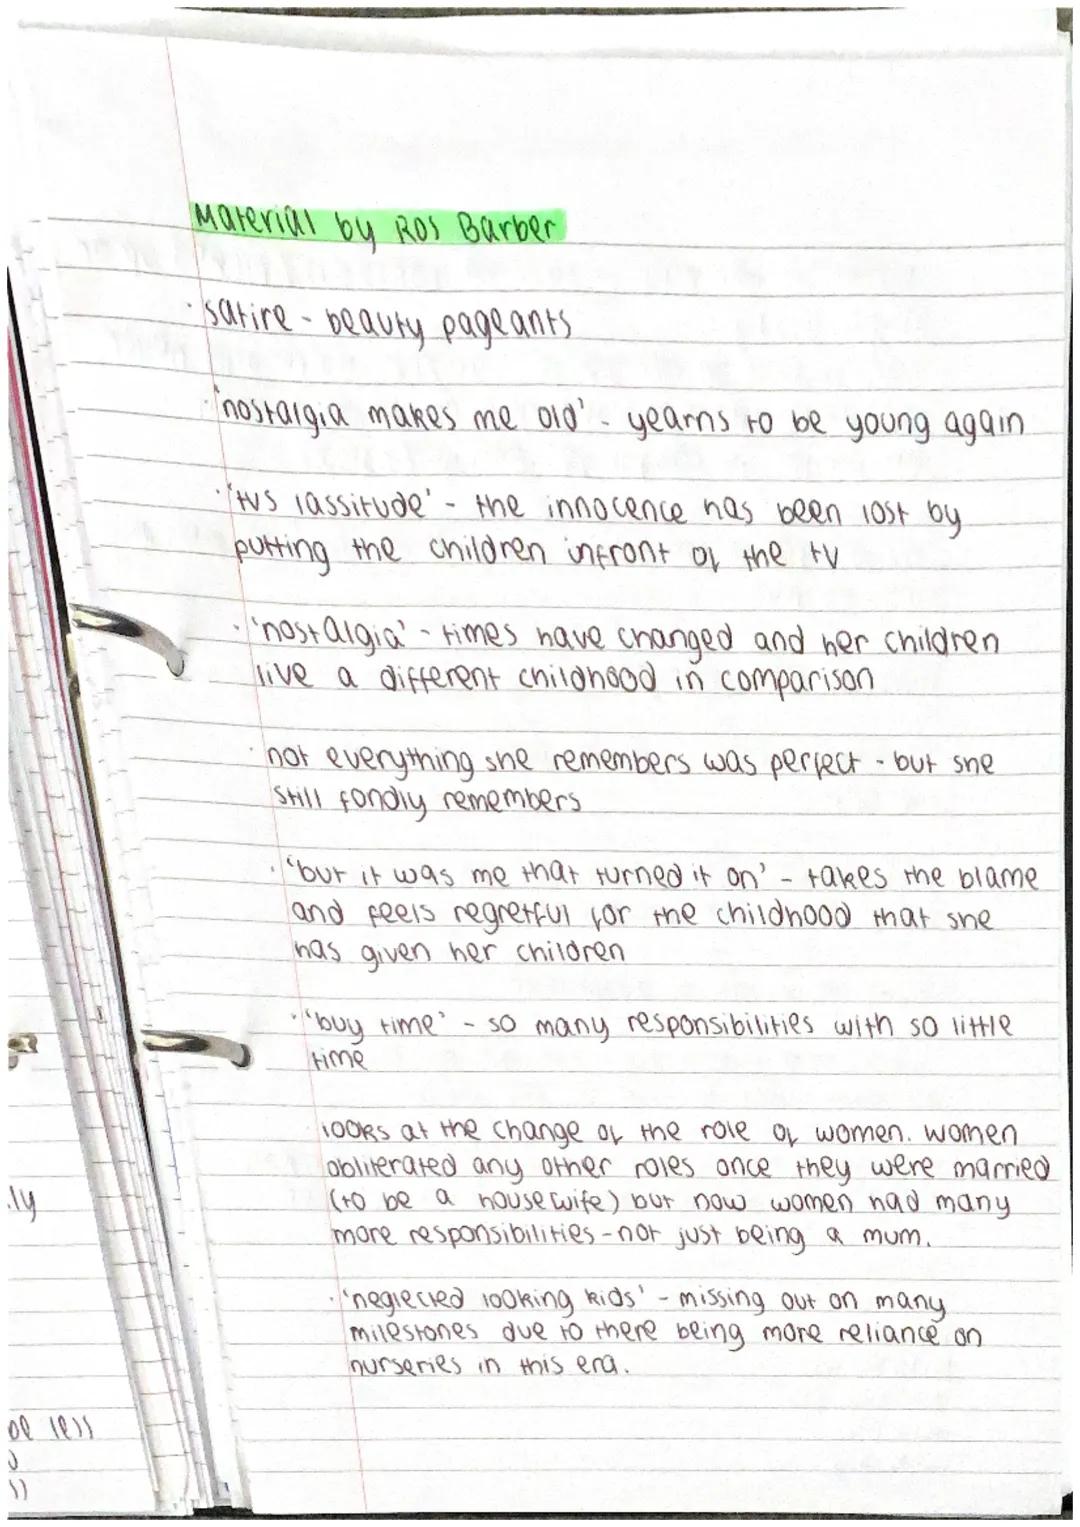 Material by Ros Barber
· satire - beauty pageants
· 'nostalgia makes me old' - yearns to be young again
· 'tvs lassitude' - the innocence has been lost by
putting the children infront of the tv
· 'nostalgia' - times have changed and her children
live a different childhood in comparison
· not everything she remembers was perfect - but she
still fondly remembers
· 'but it was me that turned it on' - takes the blame
and feels regretful for the childhood that she
has given her children
· 'buy time' - so many responsibilities with so little
time
looks at the change of the role of women. women
obliterated any other roles once they were married
(to be a housewife) but now women had many
more responsibilities - not just being a mum.
· 'neglected looking kids' - missing out on many
milestones due to there being more reliance on
nurseries in this era.
ly
be less